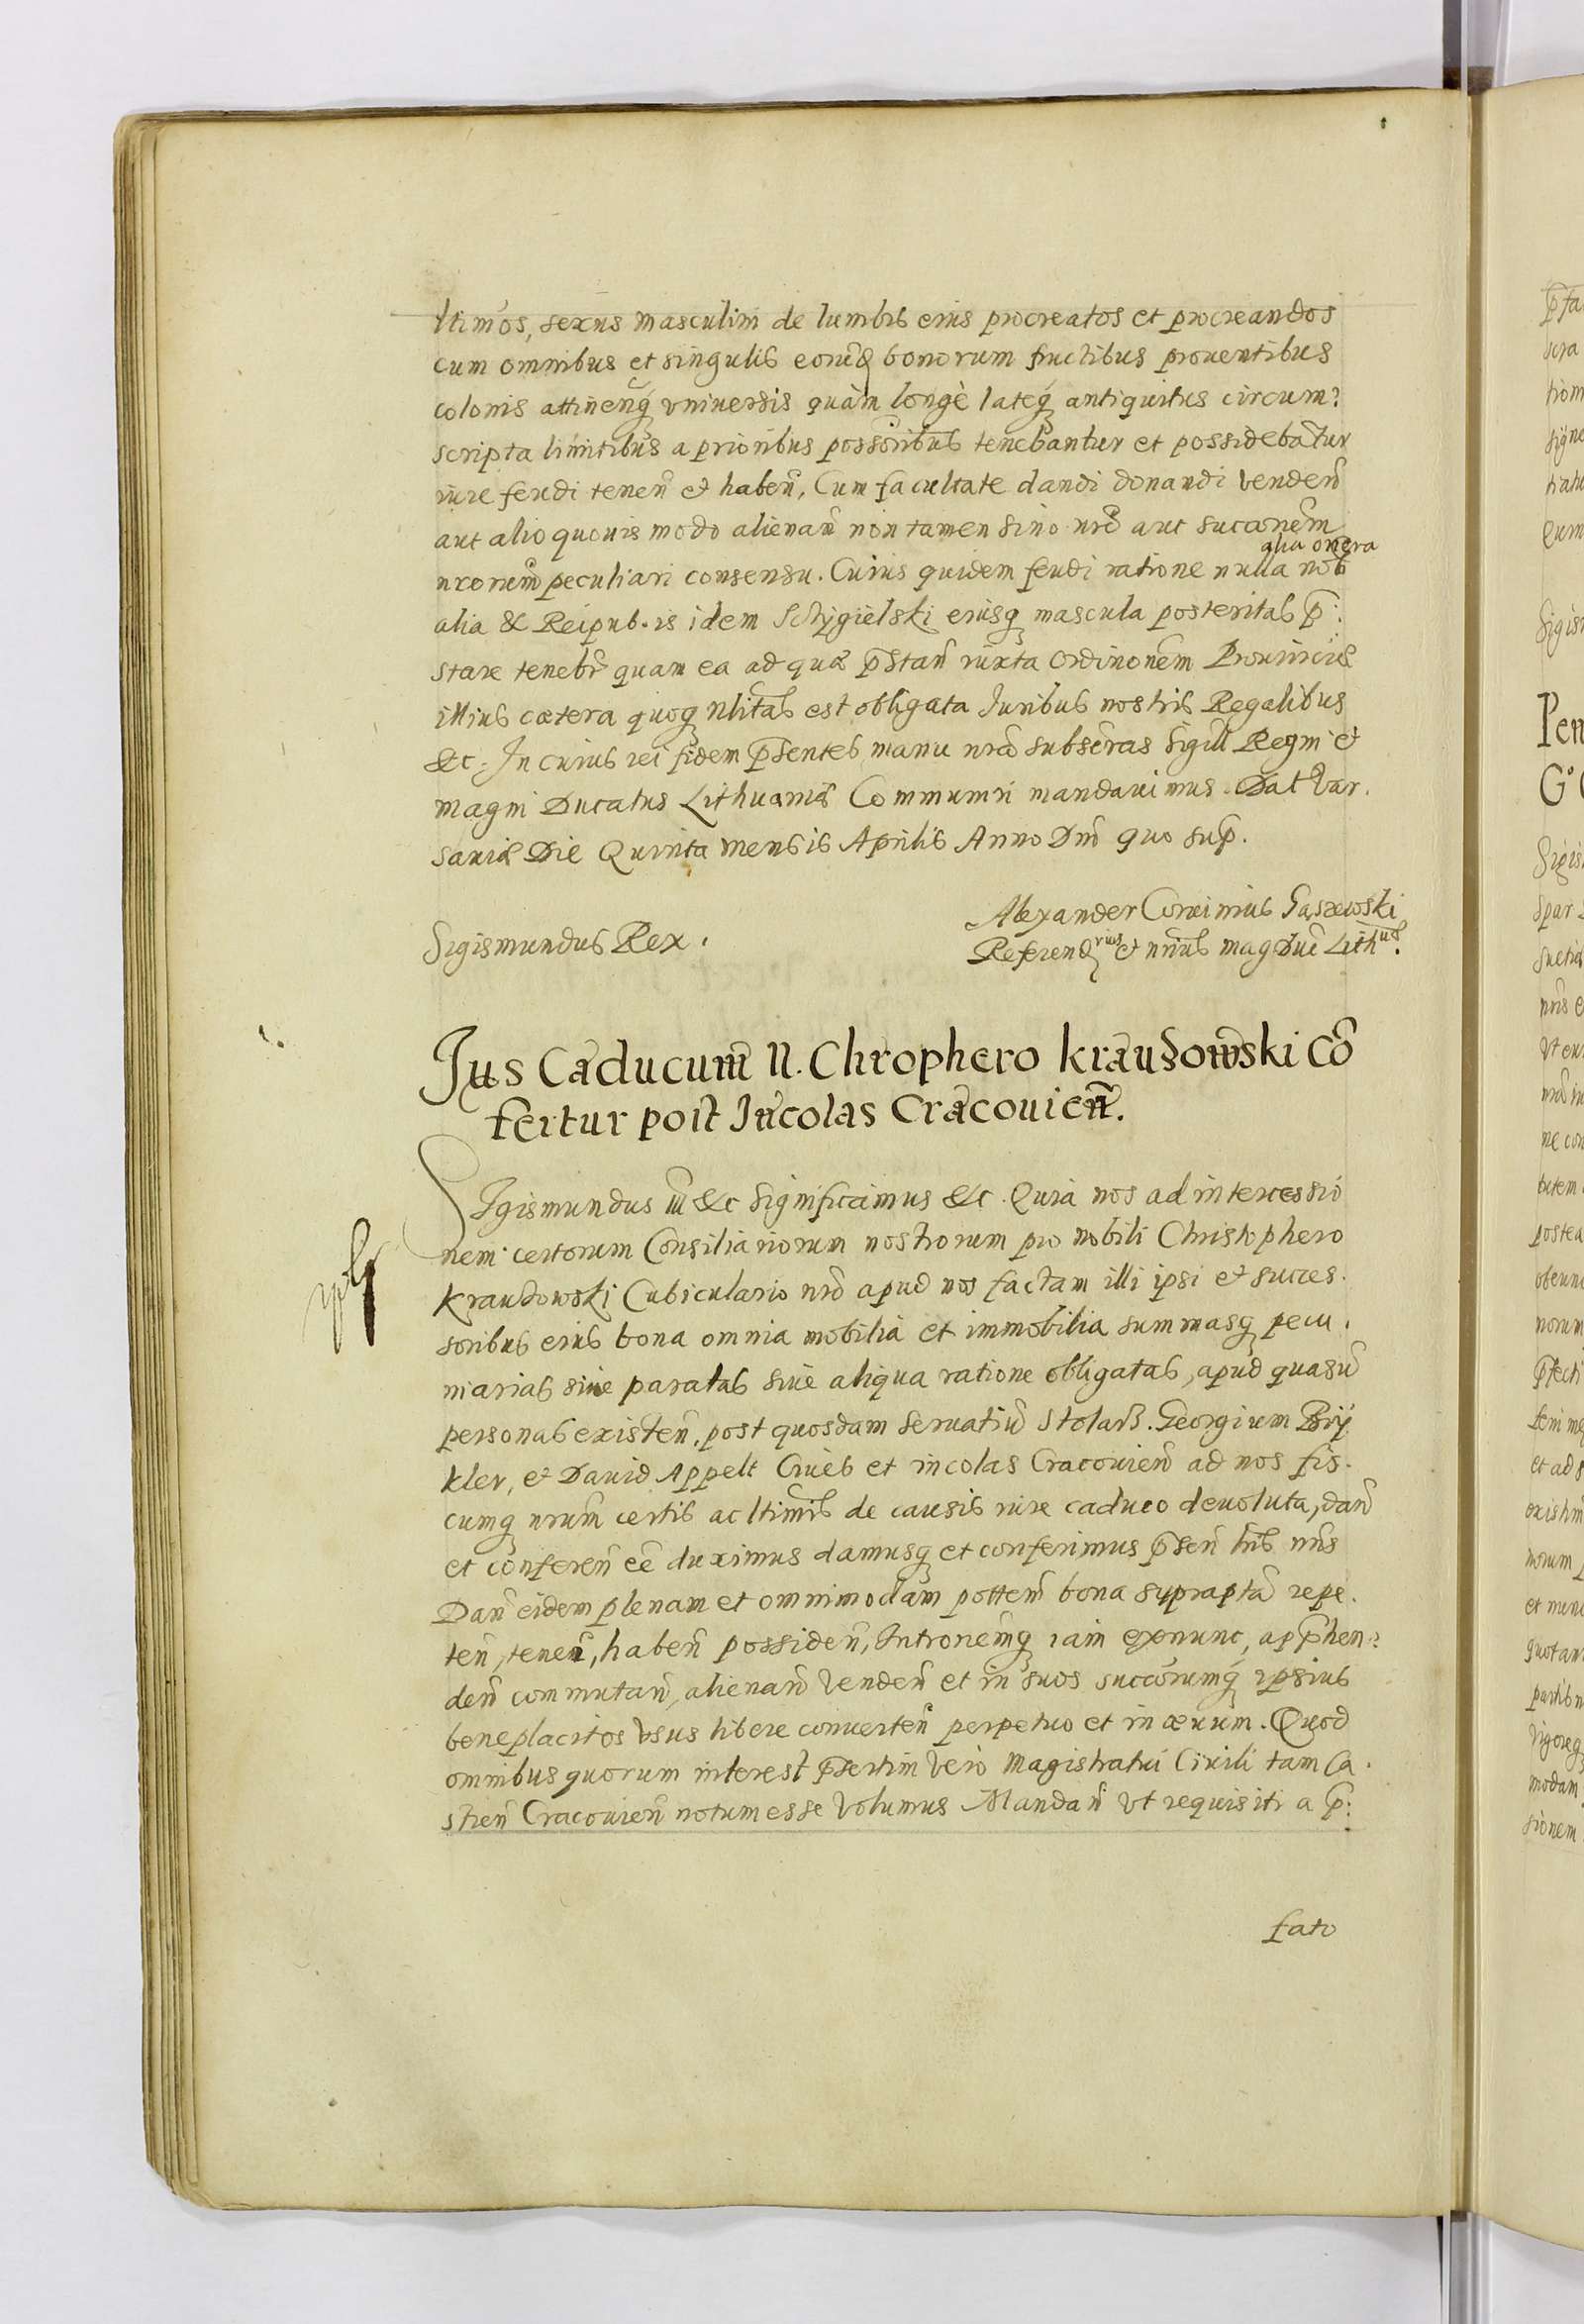 ltimos, sexus masculini de lumbis eius procreatos et procreandos
cum omnibus et singulis eorūd bonorum fructibus prouentibus
colonis attinenq̃ vniuersis quàm longè lateq̃ antiquitus circum:
scripta limitibus a prioribus possōribus tenebantur et possidebātur
iure feudi tenen̄ et haben̄, Cum facultate dandi donandi venden̄
aut alio quouis modo alienan̄ non tamen sino nr̄o aut sucorēm
nrorum̄ peculiari consensu. Cuius quidem feudi ratione nulla nob
alia onera
alia & Reipub. is idem Schÿgielski eiusq̃ mascula posteritas p̄:
stare tenebr̄ quam ea ad quæ p̄stan̄ iuxta Ordinonem̄ Prouinciæ
illius cætera quoq̃ nlitas est obligata Juribus nostris Regalibus
&c. In cuius rei fidem p̄sentes manu nrā subscras Sigill Regni et
magni Ducatus Lithuaniæ Communiri mandauimus. Dat Var.
sauiæ Die Quinta mensis Aprilis Anno Dnī quo sup̄.
Sigismundus Rex.
Alexander Corvinius Gąsiewski
Referendrius et nrius mag Duc Lithuæ.
Jus Caducum N. Chrophero krauzowski Cō
fertur post Incolas Cracouien̄.
SIgismundus III &c Significamus &c. Quia nos ad intercessio
nem certorum Consiliariorum nostrorum pro nobili Christophero
Krauzowski Cubiculario nrō apud nos factam illi ipsi et succes.
soribus eius bona omnia mobilia et immobilia summasq̃ pecu.
niarias siue paratas siue aliqua ratione obligatas, apud quasū
personas existen̄, post quosdam Seruatiū Stolarz. Georgium Brÿ
kler, et Dauid Appelt Ciues et incolas Cracouien̄ ad nos fis.
cumq̃ nrum̄ certis ac ltimis de causis iure caduco deuoluta, dan̄
et conferen̄ eē duximus damusq̃ et conferimus p̄sen̄ lrīs nrīs
Dan̄ eidem plenam et omnimodam pottem̄ bona suprapta repe.
ten̄, tenen̄, haben̄ possiden̄, Intronemq̃ iam exnunc, app̄hen:
den̄ commutan̄, alienan̄ venden̄ et in suos succorumq̃ ipsius
beneplacitos vsus libere conuerten̄ perpetuo et in æuum. Quod
omnibus quorum interest p̄sertim vero Magistratui Ciuili tam Ca.
stren̄ Cracouien̄ notum esse Volumus Mandan̄ vt requisiti a p̄:
fato